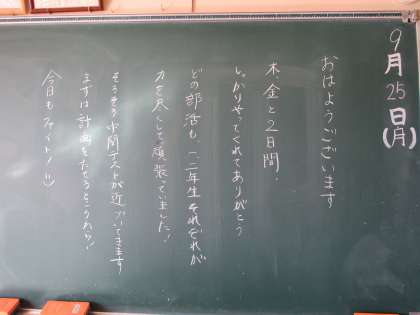 9月25日(月)
おはようございます
木、金と2日間、
しっかりやってくれてありがとう
どの部活も、一、二年生それぞれが
力を尽くして頑張っていました!
そろそろ中間テストが近づいてきます
まずは計画をたてるところから!
今日もファイト!!